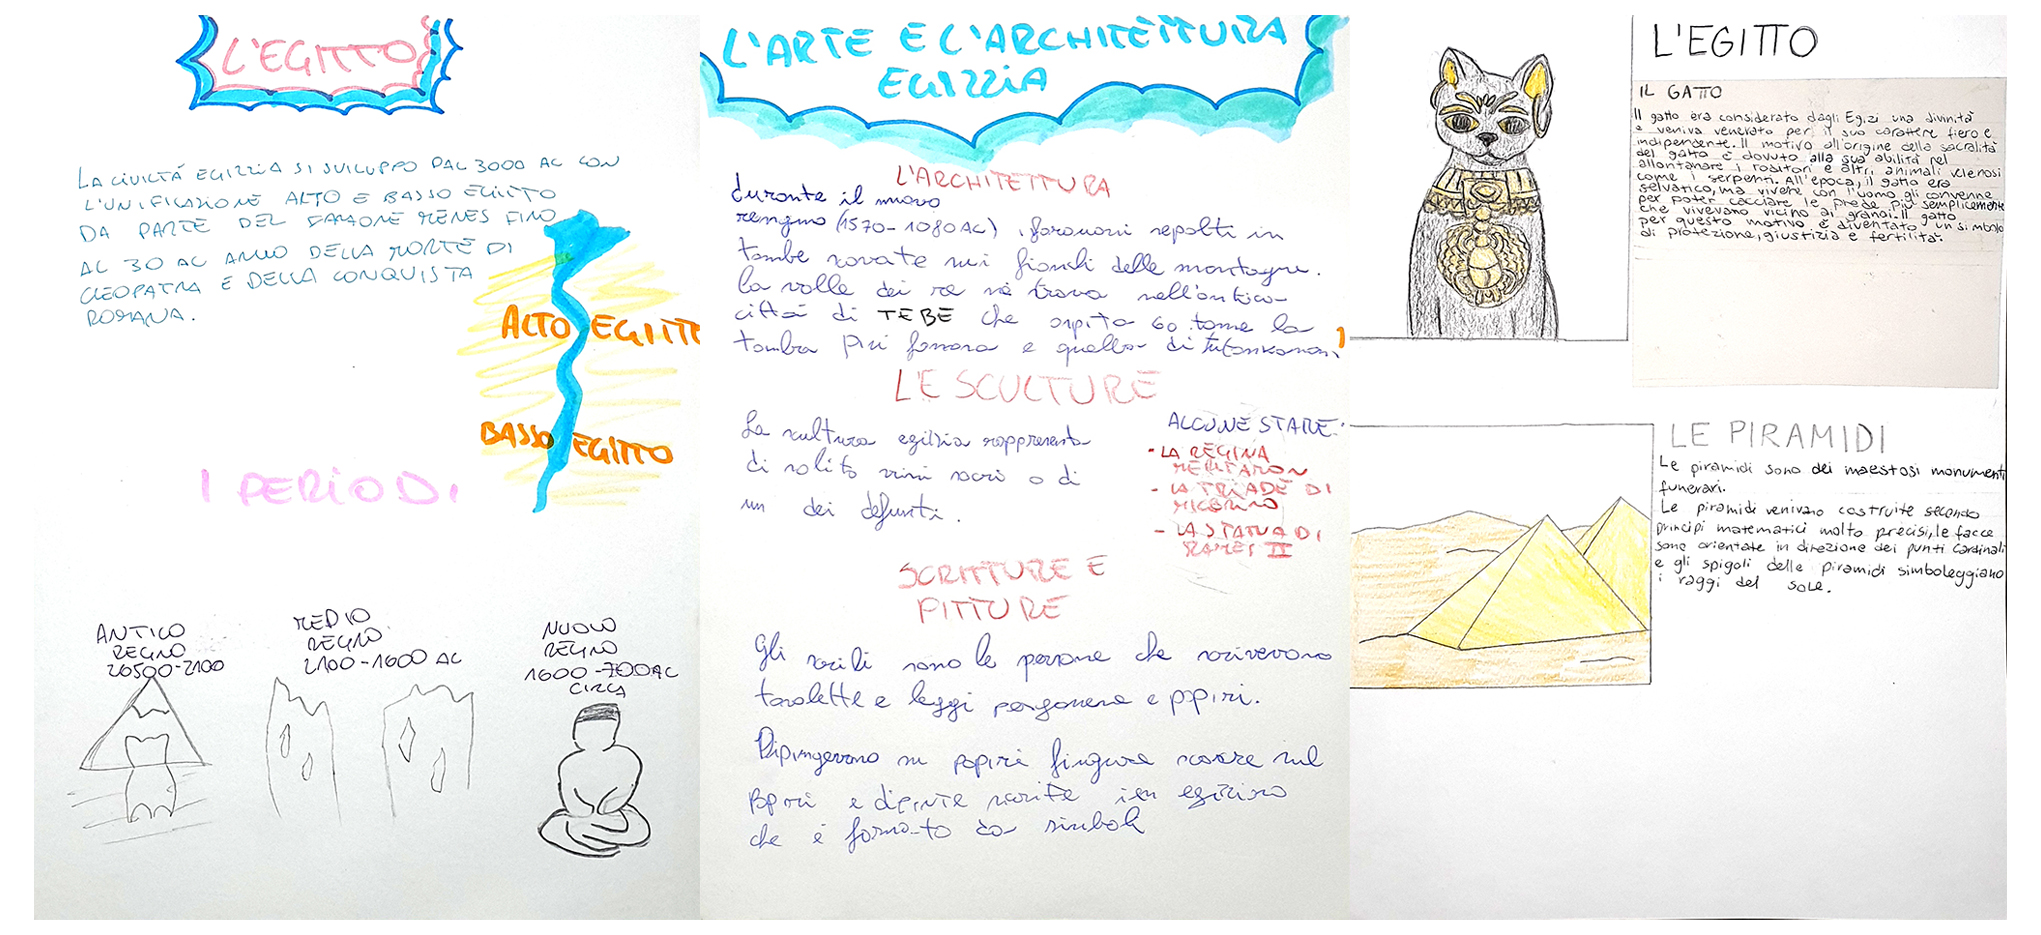 L'EGITTO
LA CIVILTÁ EGIZZIA SI SVILUPPO DAL 3000 AC CON
L'UNIFICAZIONE ALTO E BASSO EGITTO
DA PARTE DEL FARAONE MENES FINO
AL 30 AC ANNO DELLA MORTE DI
CLEOPATRA E DELLA CONQUISTA
ROMANA.
ALTO EGITT
BASSO EGITTO
I PERIODI
ANTICO
REGNO
26500-2100
MEDIO
REGNO
2100-1600 AC
NUOVO
REGNO
1600-700AC
CIRCA
L'ARTE E L'ARCHITETTURA
EGIZZIA
L'ARCHITETTURA
durante il nuovo
rengno (1570-1080AC) i faraoni sepolti in
tombe scavate nei fianchi delle montagne.
La valle dei re si trova nell'antica
città di TEBE che ospita 60 tombe la
tomba più famosa e quella di tutankamon.
LE SCULTURE
La scultura egizia rappresenta
di solito visi sacri o di
un dei defunti.
ALCUNE STATUE:
- LA REGINA
- LA TRIADE DI
MICERINO
- LA STATUA DI
RAMES II
SCRITTURE E
PITTURE
Gli scribi sono le persone che scrivevano
tavolette e leggi pergamene e papiri.
Dipingevano su papiri fingure sacre sul
papiri e dipinte scritte in egiziano
che é formato da simboli
L'EGITTO
IL GATTO
Il gatto era considerato dagli Egizi una divinità
e veniva venerato per il suo carattere fiero e
indipendente. Il motivo all'origine della sacralità
del gatto è dovuto alla sua abilità nel
allontanare i roditori e altri animali velenosi
come i serpenti. All'epoca, il gatto era
selvatico, ma vivere con l'uomo gli convenne
per poter cacciare le prede più semplicemente
che vivevano vicino ai granai. Il gatto
per questo motivo è diventato un simbolo
di protezione, giustizia e fertilità.
LE PIRAMIDI
Le piramidi sono dei maestosi monumenti
funerari.
Le piramidi venivano costruite secondo
principi matematici molto precisi, le facce
sono orientate in direzione dei punti cardinali
e gli spigoli delle piramidi simboleggiano
i raggi del sole.